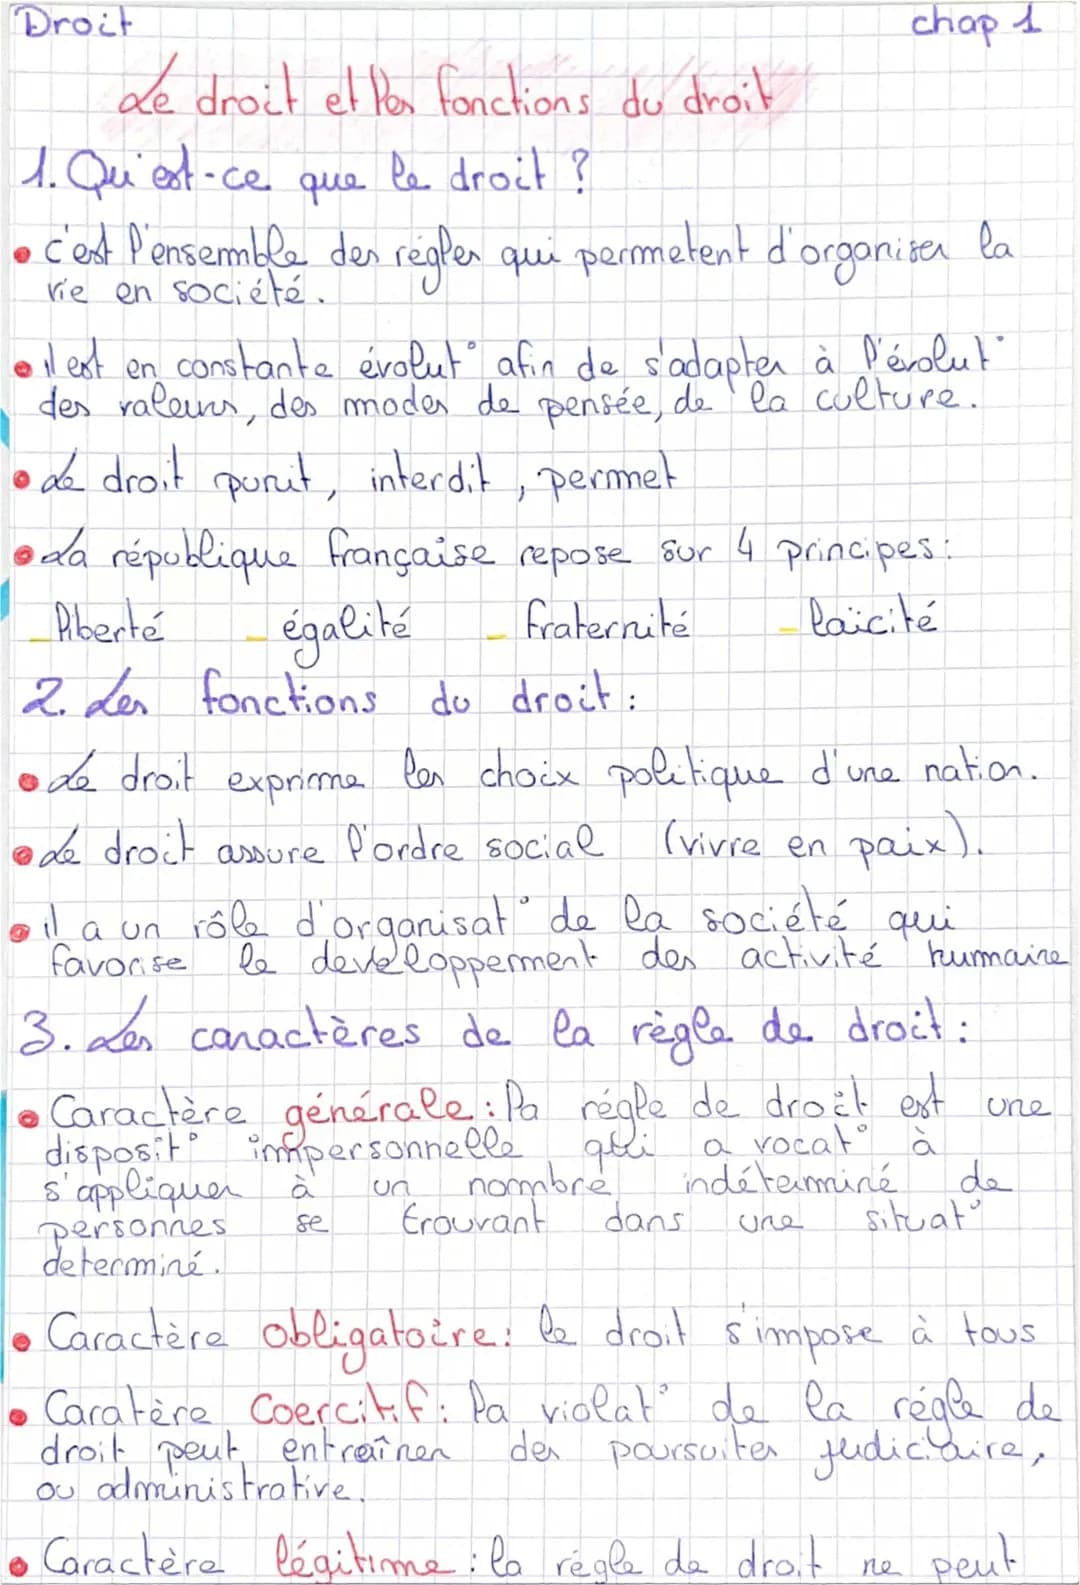 Droit chap 1
Le droit et les fonctions du droit
1. Qu'est-ce que le droit ?
• c'est l'ensemble des régles qui permetent d'organiser la
vie en société.
• il est en constante évolut° afin de s'adapter à l'évolut°
des valeurs, des modes de pensée, de la culture.
• Le droit punit, interdit, permet
• La république française repose sur 4 principes :
- liberté - égalité - fraternité - laïcité
2. Les fonctions du droit :
• Le droit exprime les choix politique d'une nation.
• Le droit assure l'ordre social (vivre en paix).
• il a un rôle d'organisat° de la société qui
favorise le developperment des activité humaine
3. Les caractères de la règle de droit :
• Caractère générale : la régle de droit est une
disposit° impersonnelle qui a vocat° à
s'appliquer à un nombre indéterminé de
personnes se trouvant dans une situat°
determiné.
• Caractère obligatoire : le droit s'impose à tous
• Caratère Coercitif : la violat° de la régle de
droit peut entraîner des poursuites judiciaire,
ou administrative.
• Caractère légitime : la régle de droit ne peut